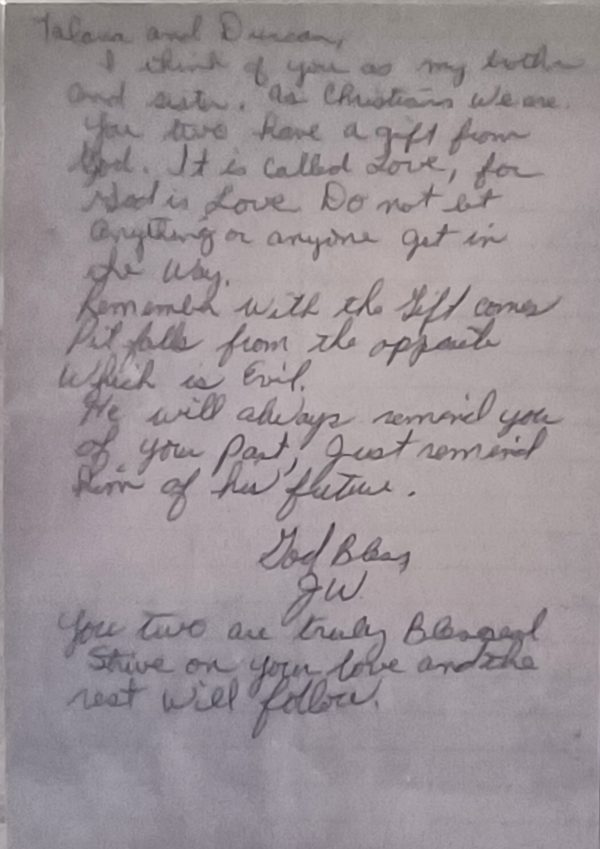 and Duncan,
I think of you as my brother
and sister. as Christians we are.
You two have a gift from
God. It is called Love, for
God is Love Do not let
anything or anyone get in
the way.
Remember with the Gift comes
Pit falls from the opposite
which is Evil.
He will always remind you
of your past, Just remind
him of his future.
God Bless,
JW.
You two are truly Blessed
Strive on your love and the
rest will follow.